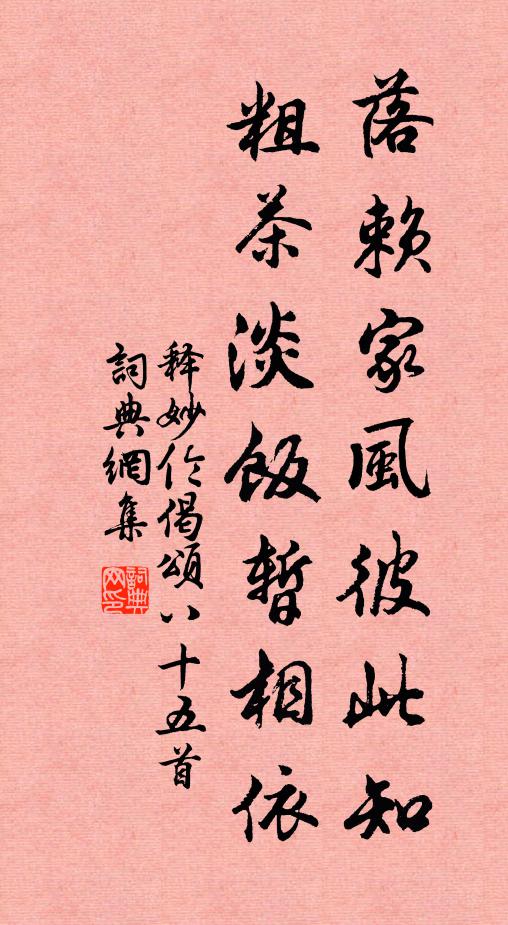 落赖家風彼此知
粗茶淡飯暫相依
释妙伦偈頌八十五首
詞典網集
詞典网印